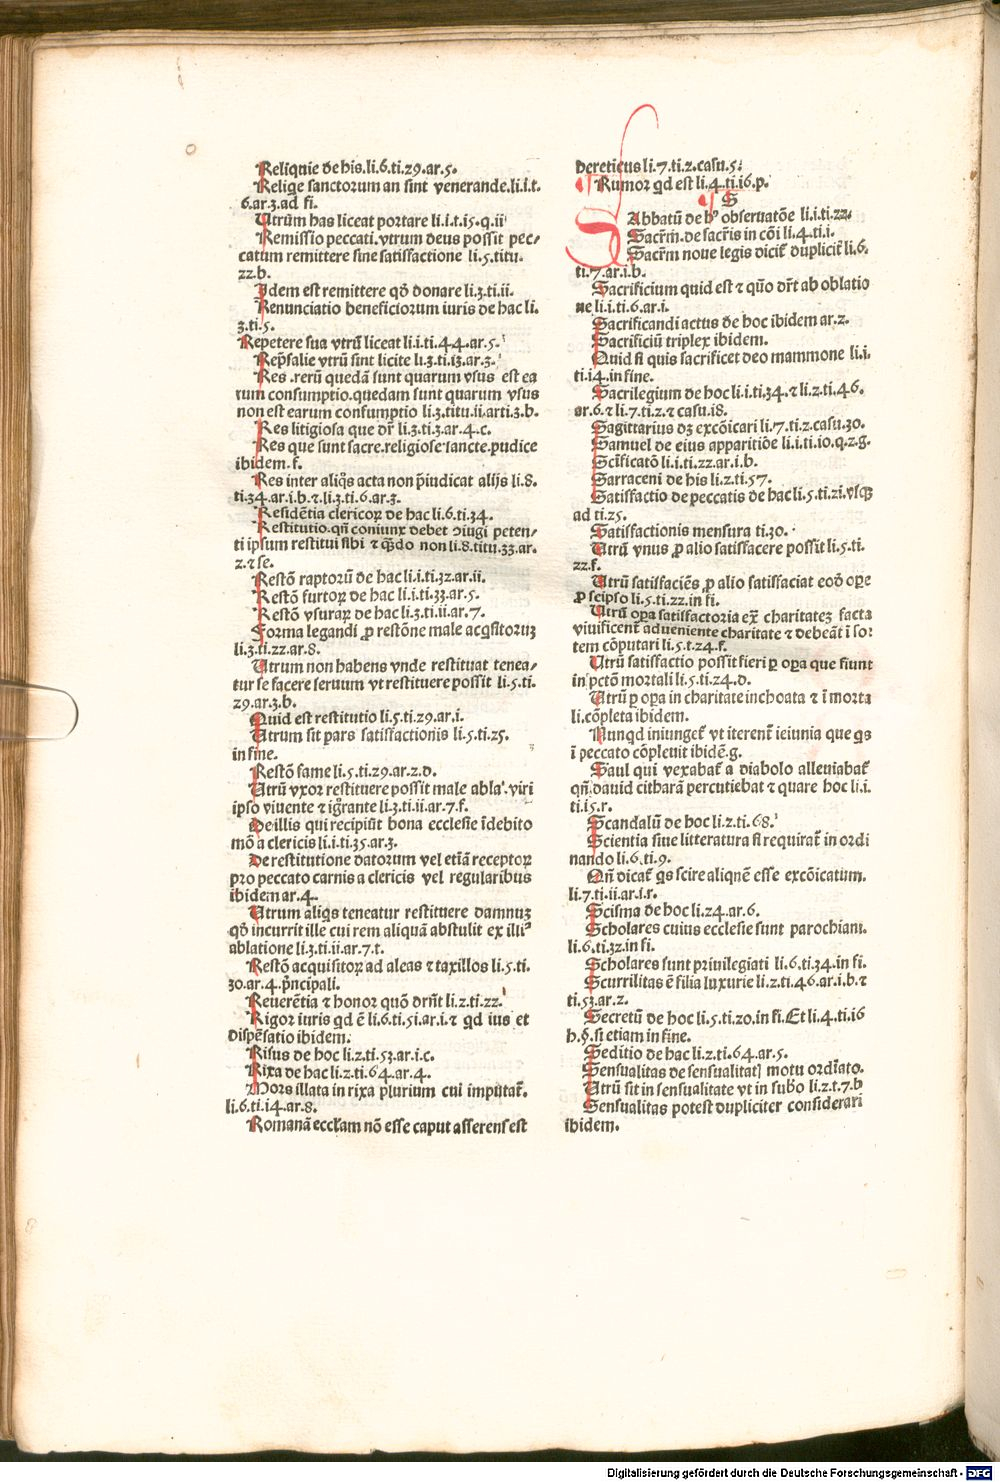 Reliquie de his.li.6.ti.29.ar.5.
Reliqe sanctorum an sint venerande.li.i.t.
6.ar.3.ad fi.
Utrum has liceat portare li.i.t.15.q.ii
Remissio peccati.vtrum deus possit pec⸗
catum remittere sine satisfactione li.5.titu.
22.b.
Idem est remittere qđ donare li.3.ti.ii.
Renunciatio beneficiorum iuris de hac li.
3.ti.5.
Repetere sua vtrū liceat li.i.ti.44.ar.5.
Rep̄salie vtrū sint licite li.3.ti.13.ar.3.
Res .rerū quedā sunt quarum vsus est ea
rum consumptio.quedam sunt quarum vsus
non est earum consumptio li.3.titu.ii.arti.3.b.
Res litigiosa que dr̄ li.3.ti.3.ar.4.c.
Res que sunt sacre.religiose sancte.pudice
ibidem.f.
Res inter aliq̄s acta non p̄iudicat alijs li.8.
ti.34.ar.i.b.⁊.li.3.ti.6.ar.3.
Residētia clericoꝝ de hac li.6.ti.34.
Restitutio.qn̄ coniunx debet ↄiugi peten⸗
ti ipsum restitui sibi ⁊ qn̄do non li.8.titu.33.ar.
2.⁊ se.
Restō raptorū de hac li.i.ti.32.ar.ii.
Restō furtoꝝ de hac li.i.ti.33.ar.5.
Restō vsuraꝝ de hac li.3.ti.ii.ar.7.
Forma legandi ꝓ restōne male acq̄sitoruꝫ
li.3.ti.22.ar.8.
Utrum non habens vnde restituat tenea⸗
tur se facere seruum vt restituere possit li.5.ti.
29.ar.3.b.
Quid est restitutio li.5.ti.29.ar.i.
Utrum sit pars satisfactionis li.5.ti.25.
in fine.
Restō fame li.5.ti.29.ar.2.d.
Utrū vxor restituere possit male abla.viri
ipso viuente ⁊ iḡrante li.3.ti.ii.ar.7.f.
De illis qui recipiūt bona ecclesie īdebito
mō a clericis li.i.ti.35.ar.3.
De restitutione datorum vel etiā receptoꝝ
pro peccato carnis a clericis vel regularibus
ibidem ar.4.
Utrum aliq̄s teneatur restituere damnuꝫ
qđ incurrit ille cui rem aliquā abstulit ex illi⁹
ablatione li.3.ti.ii.ar.7.t.
Restō acquisitoꝝ ad aleas ⁊ taxillos li.5.ti.
30.ar.4.p̄ncipali.
Reuerētia ⁊ honor quō drn̄t li.2.ti.22.
Rigor iuris qd ē li.6.ti.51.ar.i.⁊ qd ius et
dispēsatio ibidem.
Risus de hoc li.2.ti.53.ar.i.c.
Rixa de hac li.2.ti.64.ar.4.
Mors illata in rixa plurium cui imputat̄.
li.6.ti.14.ar.8.
Romanā eccl̄am nō esse caput asserens est
hereticus li.7.ti.2.casu.5.
Rumor qd est li.4.ti.16.p.
S
SAbbatū de h⁹ obseruatōe li.i.ti.22.
Sacr̄m.de sacr̄is in cōi li.4.ti.i.
Sacr̄m noue legis dicit̄ duplicit̄ li.6.
ti.7.ar.i.b.
Sacrificium quid est ⁊ quō dr̄t ab oblatio
ne li.i.ti.6.ar.i.
Sacrificandi actus de hoc ibidem ar.2.
Sacrificiū triplex ibidem.
Quid si quis sacrificet deo mammone li.i.
ti.14.in fine.
Sacrilegium de hoc li.i.ti.34.⁊ li.2.ti.46.
ar.6.⁊ li.7.ti.2.⁊ casu.18.
Sagittarius dꝫ excōicari li.7.ti.2.casu.30.
Samuel de eius apparitiōe li.i.ti.10.q.2.g.
Sc̄ificatō li.i.ti.22.ar.i.b.
Sarraceni de his li.2.ti.57.
Satisfactio de peccatis de hac li.5.ti.21.vsqꝫ
ad ti.25.
Satisfactionis mensura ti.30.
Utrū vnus ꝓ alio satisfacere possit li.5.ti.
22.f.
Utrū satisfaciēs ꝓ alio satisfaciat eodē oꝑe
ꝓ seipso li.5.ti.22.in fi.
Utrū oꝑa satisfactoria ex̄ charitateꝫ facta
viuificent̄ adueniente charitate ⁊ debeāt ī for
tem cōputari li.5.t.24.f.
Utrū satisfactio possit fieri ꝑ oꝑa que fiunt
in pctō mortali li.5.ti.24.d.
Utrū ꝑ oꝑa in charitate inchoata ⁊ ī morta
li.cōpleta ibidem.
Nunqd iniunget̄ vt iterent̄ ieiunia que q̄s
ī peccato cōpleuit ibidē.g.
Saul qui vexabat̄ a diabolo alleuiabat̄
qn̄.dauid citharā percutiebat ⁊ quare hoc li.i.
ti.15.r.
Scandalū de hoc li.2.ti.68.
Scientia siue litteratura si requirat̄ in ordi
nando li.6.ti.9.
Qn̄ dicat̄ q̄s scire aliquē esse excōicatum.
li.7.ti.ii.ar.i.r.
Scisma de hoc li.24.ar.6.
Scholares cuius ecclesie sunt parochiani.
li.6.ti.32.in fi.
Scholares sunt priuilegiati li.6.ti.34.in fi.
Scurrilitas ē filia luxurie li.2.ti.46.ar.i.b.⁊
ti.53.ar.2.
Secretū de hoc li.5.ti.20.in fi.Et li.4.ti.16
h.§.si etiam in fine.
Seditio de hac li.2.ti.64.ar.5.
Sensualitas de sensualitatꝭ motu ordīato.
Utrū sit in sensualitate vt in subō li.2.t.7.b
Sensualitas potest dupliciter considerari
ibidem.
Digitalisierung gefördert durch die Deutsche Forschungsgemeinschaft - DFG